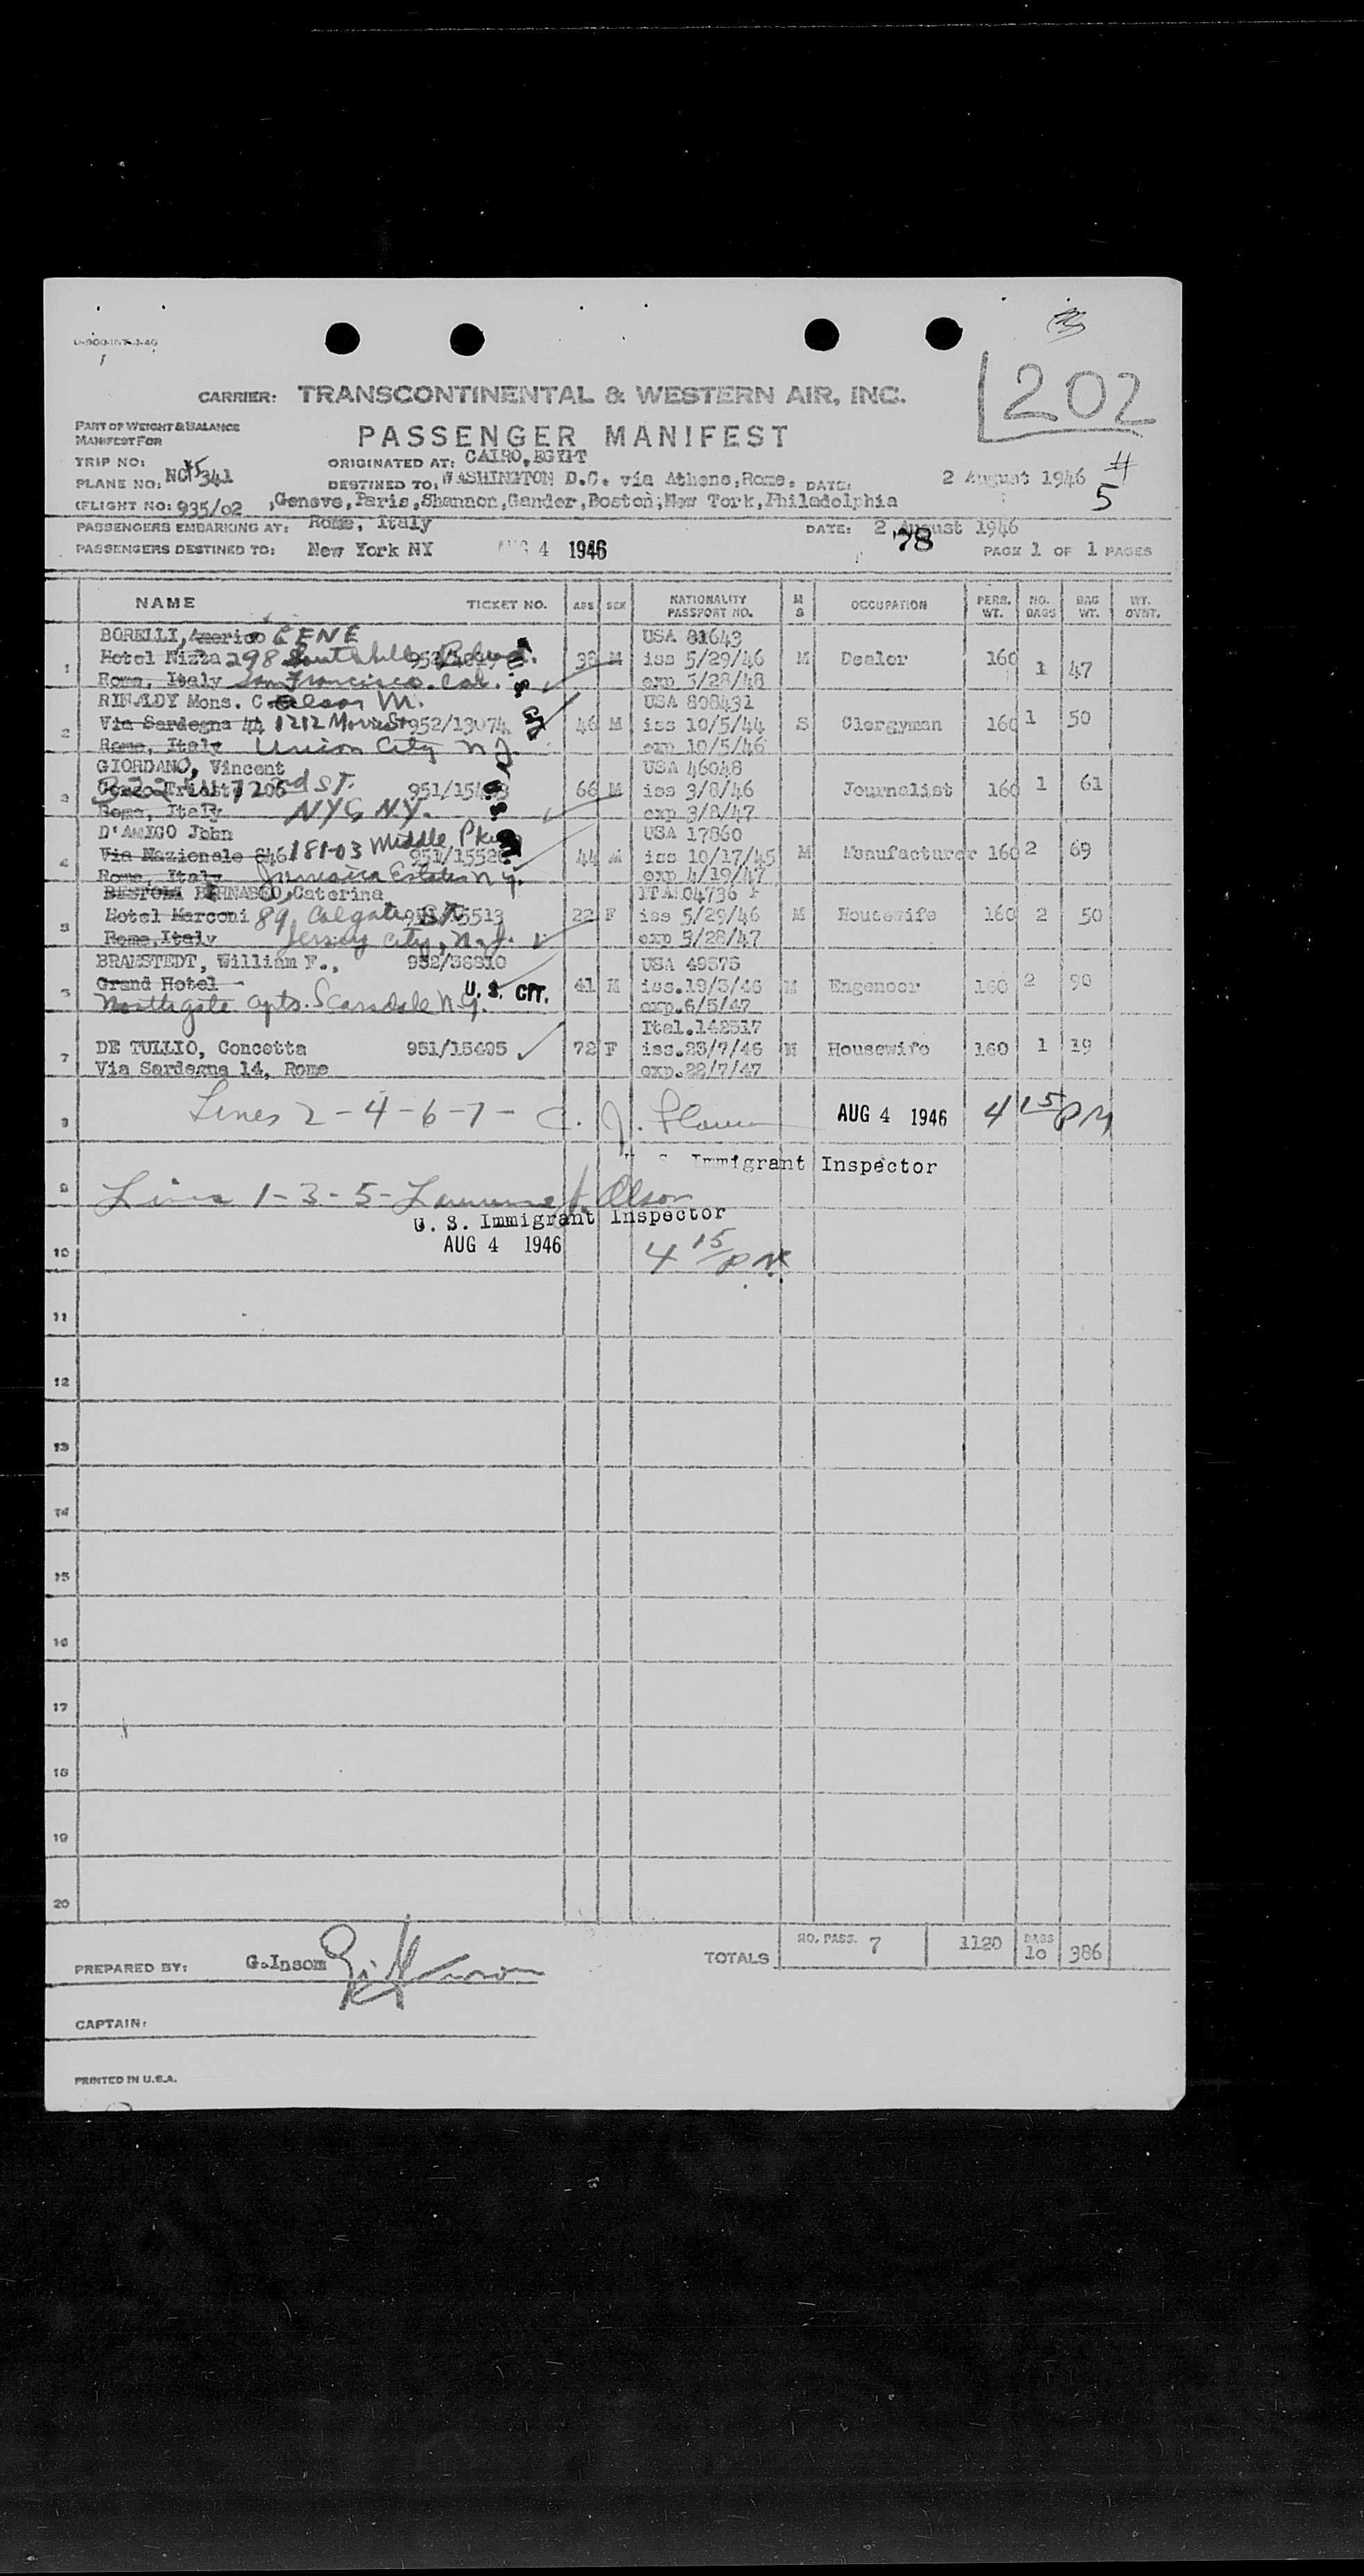 U-900-INT-4-46
1
202
CARRIER: TRANSCONTINENTAL & WESTERN AIR, INC.
PART OF WEIGHT & BALANCE
MANIFEST FOR
PASSENGER MANIFEST
TRIP NO:
ORIGINATED AT: CAIRO, EGYPT
PLANE NO: NC 341
DESTINED TO, WASHINGTON D.C. via Athens, Rome, DATE: 2 August 1946
# 5
(FLIGHT NO: 935/02 ,Geneve, Paris, Shannon, Gander, Boston, New York, Philadelphia
PASSENGERS EMBARKING AT: Rome, Italy DATE: 2 August 1946
78
PASSENGERS DESTINED TO: New York NY AUG 4 1946 PAGE 1 OF 1 PAGES
NAME TICKET NO. AGE SEX NATIONALITY PASSPORT NO. M S OCCUPATION PERS. WT. NO. BAGS BAG WT. WT. OVNT.
BORELLI, Americo GENE USA 81643
1 Hotel Nizza 298 Blvd. 38 M iss 5/29/46 M Dealer 160 1 47
Rome, Italy San Francisco. Cal. exp 5/28/48
U.S. CIT.
RINALDY Mons. C M. USA 808431
2 Via Sardegna 44 1212 St 952/13074 46 M iss 10/5/44 S Clergyman 160 1 50
Rome, Italy Union City N.J. exp 10/5/46
GIORDANO, Vincent USA 46048
3 Corso Trieste 206 322 W 72nd ST. 66 M iss 3/8/46 Journalist 160 1 61
Rome, Italy NYC N.Y. exp 3/8/47
U.S. CIT.
D'AMICO John USA 17860
4 Via Nazionale 246 181-03 Middle Pkwy 44 M iss 10/17/45 M Manufacturer 160 2 69
Rome, Italy Jamaica Estates N.Y. exp 4/19/47
BERNASCO, Caterina ITA 04736
5 Hotel Marconi 89 Colgate ST. 22 F iss 5/29/46 M Housewife 160 2 50
Rome, Italy Jersey City, N.J. exp 5/28/47
BRANSTEDT, William F., 952/38310 USA 49575
6 Grand Hotel - U. S. CIT. 41 M M Engeneer 160 2 90
Northgate Apts. Scarsdale N.Y. exp. 6/5/47
Ital. 142517
7 DE TULLIO, Concetta 951/15495 72 F iss. 23/7/46 M Housewife 160 1 19
Via Sardegna 14, Rome exp. 22/7/47
8 Lines 2-4-6-7- C. J. AUG 4 1946 4 15 PM
U. S. Immigrant Inspector
9 Lines 1-3-5- Olson
U. S. Immigrant Inspector
10 AUG 4 1946 4 15 P.M.
11
12
13
14
15
16
17
18
19
20
TOTALS NO. PASS. 7 1120 BAGS 10 386
PREPARED BY: G.Insom
CAPTAIN:
PRINTED IN U.S.A.